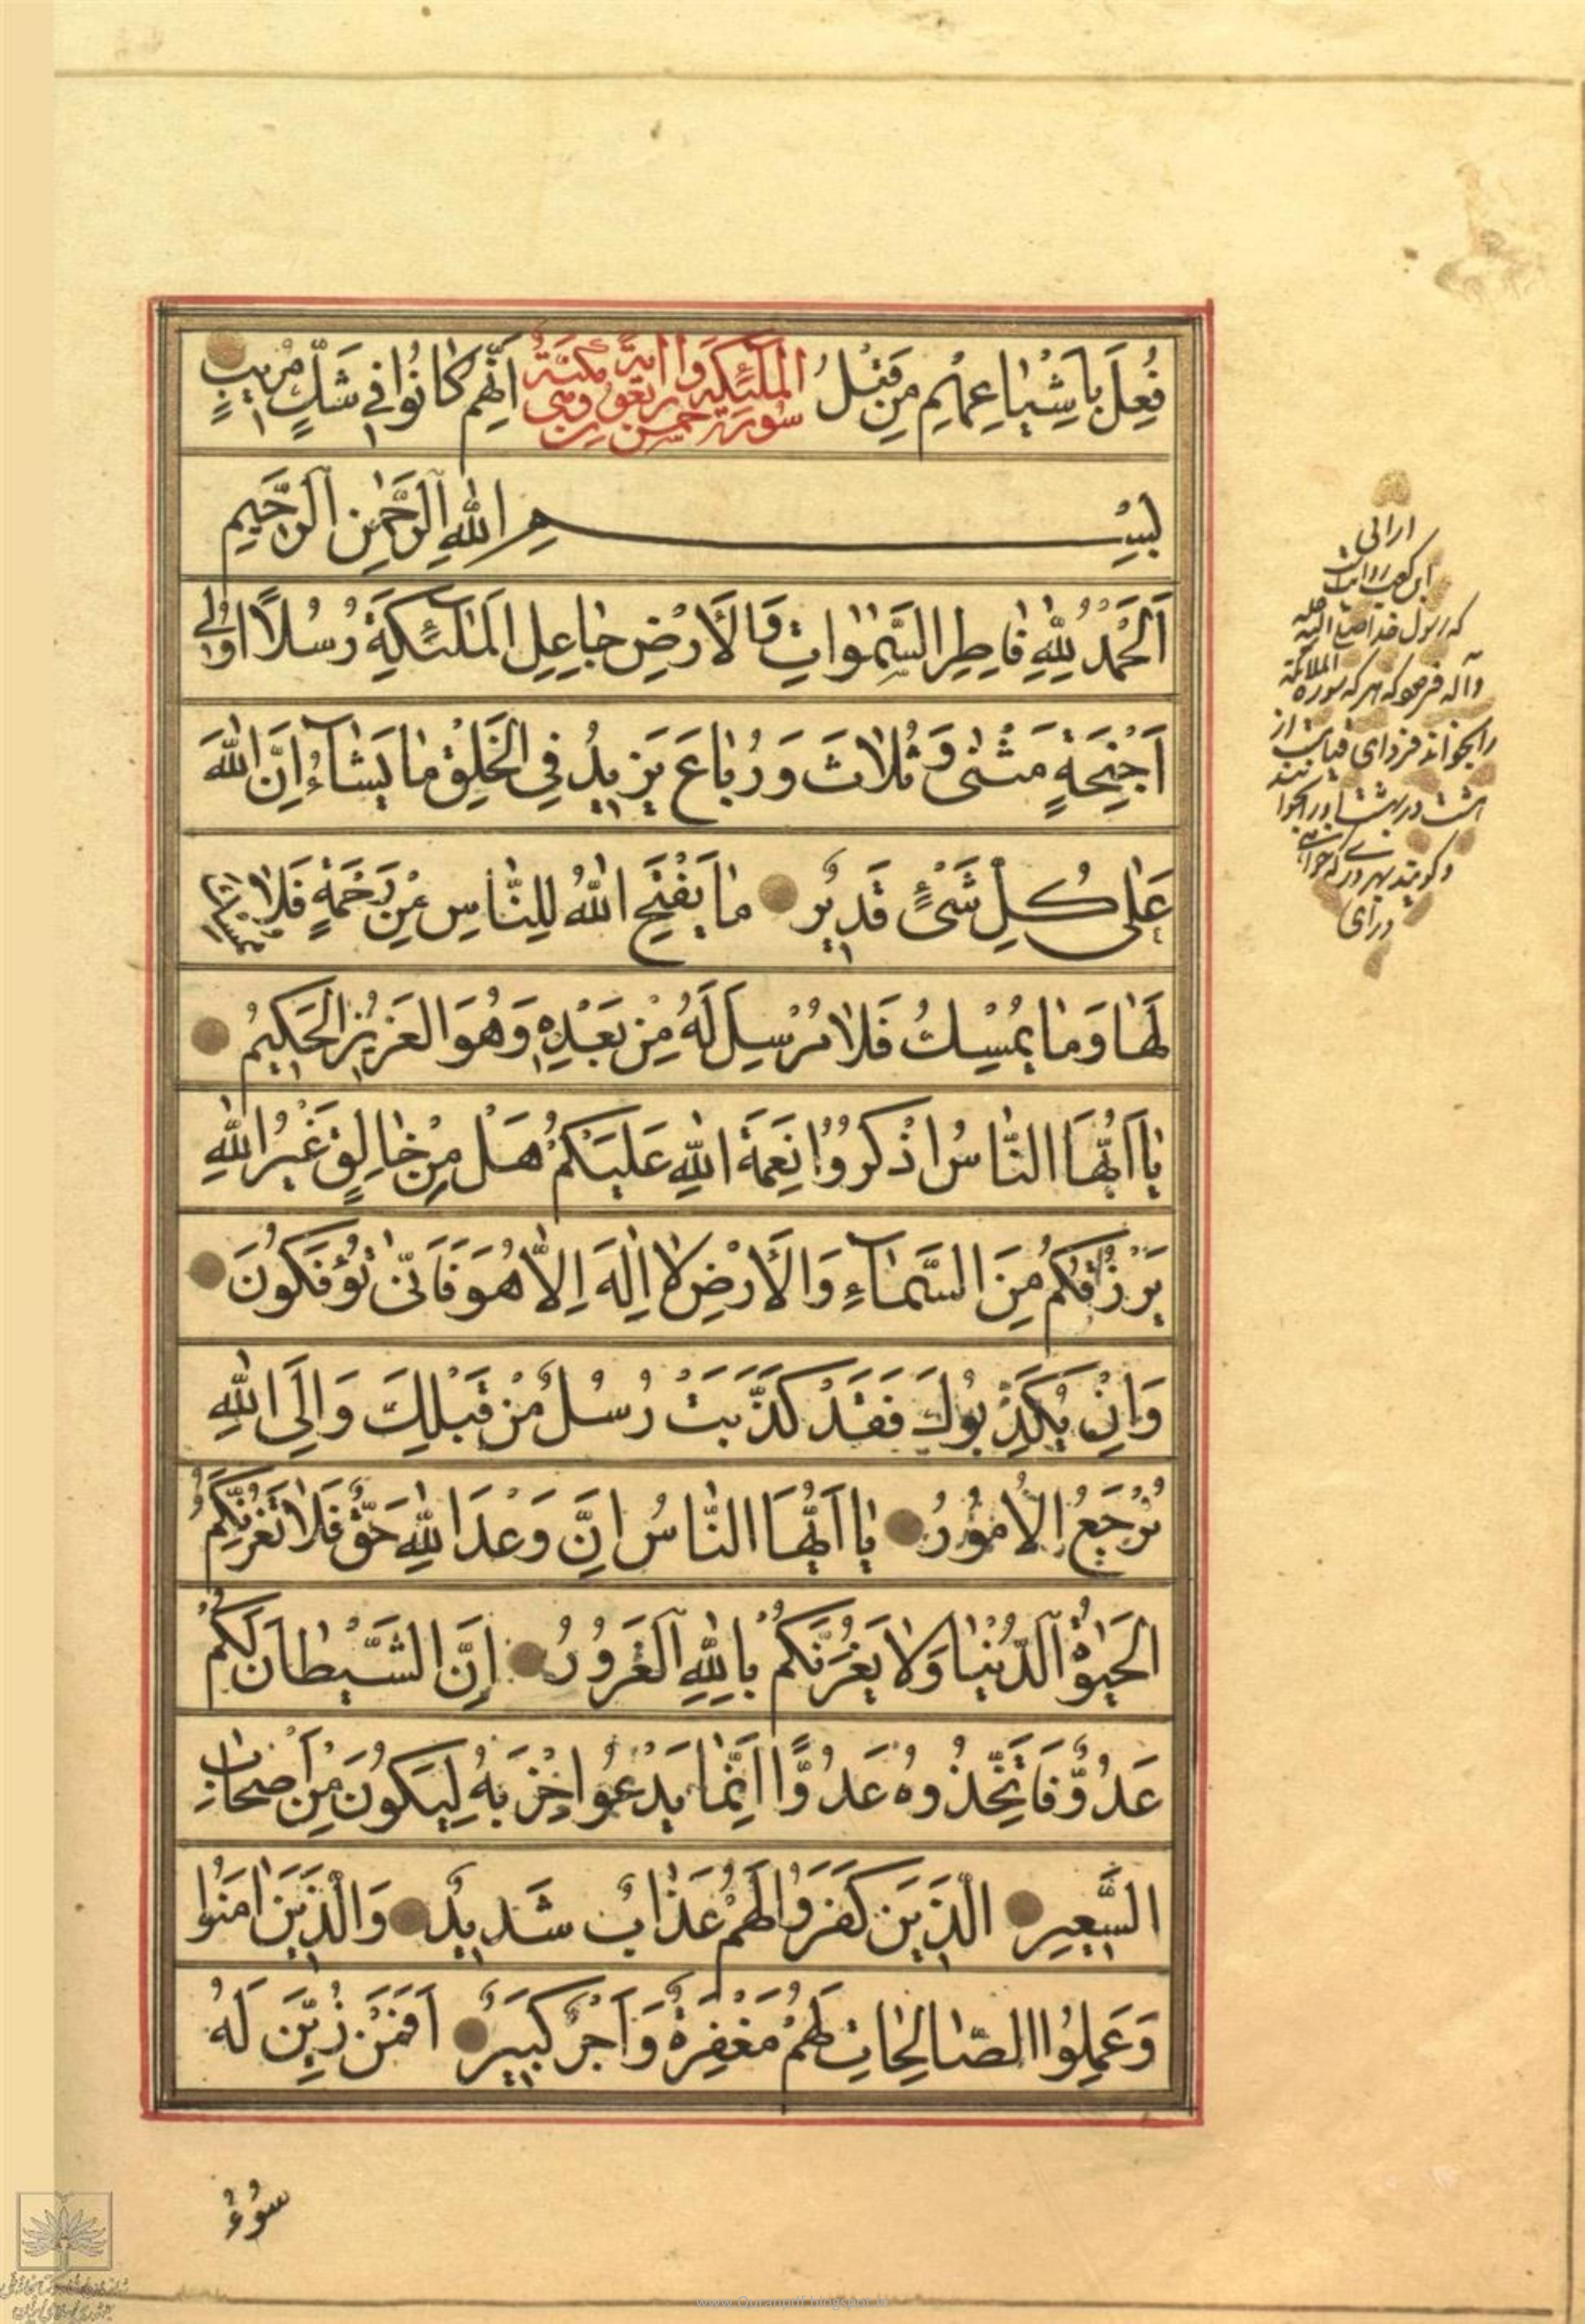 فُعِلَ بِاَشْيٰاعِهِمْ مِنْ قَبْلُ اِنَّهُمْ كٰانُوا فِي شَكٍّ مُرِيبٍ
سُورَةُ الْمَلٰٓئِكَةِ خمس و اربعون اية وهي مكية
بِسْمِ اللّٰهِ الرَّحْمٰنِ الرَّحِيمِ
اَلْحَمْدُ لِلّٰهِ فٰاطِرِ السَّمٰوٰاتِ وَالْاَرْضِ جٰاعِلِ الْمَلٰٓئِكَةِ رُسُلًا اُولِٓي
اَجْنِحَةٍ مَثْنٰى وَثُلٰاثَ وَرُبٰاعَ يَزِيدُ فِي الْخَلْقِ مٰا يَشٰٓاءُ اِنَّ اللّٰهَ
عَلٰى كُلِّ شَيْءٍ قَدِيرٌ مٰا يَفْتَحِ اللّٰهُ لِلنّٰاسِ مِنْ رَحْمَةٍ فَلٰا مُمْسِكَ
لَهٰا وَمٰا يُمْسِكْ فَلٰا مُرْسِلَ لَهُ مِنْ بَعْدِهِ وَهُوَ الْعَزِيزُ الْحَكِيمُ
يٰا اَيُّهَا النّٰاسُ اذْكُرُوا نِعْمَةَ اللّٰهِ عَلَيْكُمْ هَلْ مِنْ خٰالِقٍ غَيْرُ اللّٰهِ
يَرْزُقُكُمْ مِنَ السَّمٰٓاءِ وَالْاَرْضِ لٰا اِلٰهَ اِلّٰا هُوَ فَاَنّٰى تُؤْفَكُونَ
وَاِنْ يُكَذِّبُوكَ فَقَدْ كُذِّبَتْ رُسُلٌ مِنْ قَبْلِكَ وَاِلَى اللّٰهِ
تُرْجَعُ الْاُمُورُ يٰا اَيُّهَا النّٰاسُ اِنَّ وَعْدَ اللّٰهِ حَقٌّ فَلٰا تَغُرَّنَّكُمُ
الْحَيٰوةُ الدُّنْيٰا وَلٰا يَغُرَّنَّكُمْ بِاللّٰهِ الْغَرُورُ اِنَّ الشَّيْطٰانَ لَكُمْ
عَدُوٌّ فَاتَّخِذُوهُ عَدُوًّا اِنَّمٰا يَدْعُوا حِزْبَهُ لِيَكُونُوا مِنْ اَصْحٰابِ
السَّعِيرِ الَّذِينَ كَفَرُوا لَهُمْ عَذٰابٌ شَدِيدٌ وَالَّذِينَ اٰمَنُوا
وَعَمِلُوا الصّٰالِحٰاتِ لَهُمْ مَغْفِرَةٌ وَاَجْرٌ كَبِيرٌ اَفَمَنْ زُيِّنَ لَهُ
سُوءُ
از ابی
ابن کعب روایت
که رسول خدا صلی الله علیه
وآله فرموکه هر که سوره الملائکة
را بخواند فردای قیامت از
هشت در بهشت اورا بخوانند
وکویند بهر در که خواهی
درآی
www.Quranpdf.blogspot.in